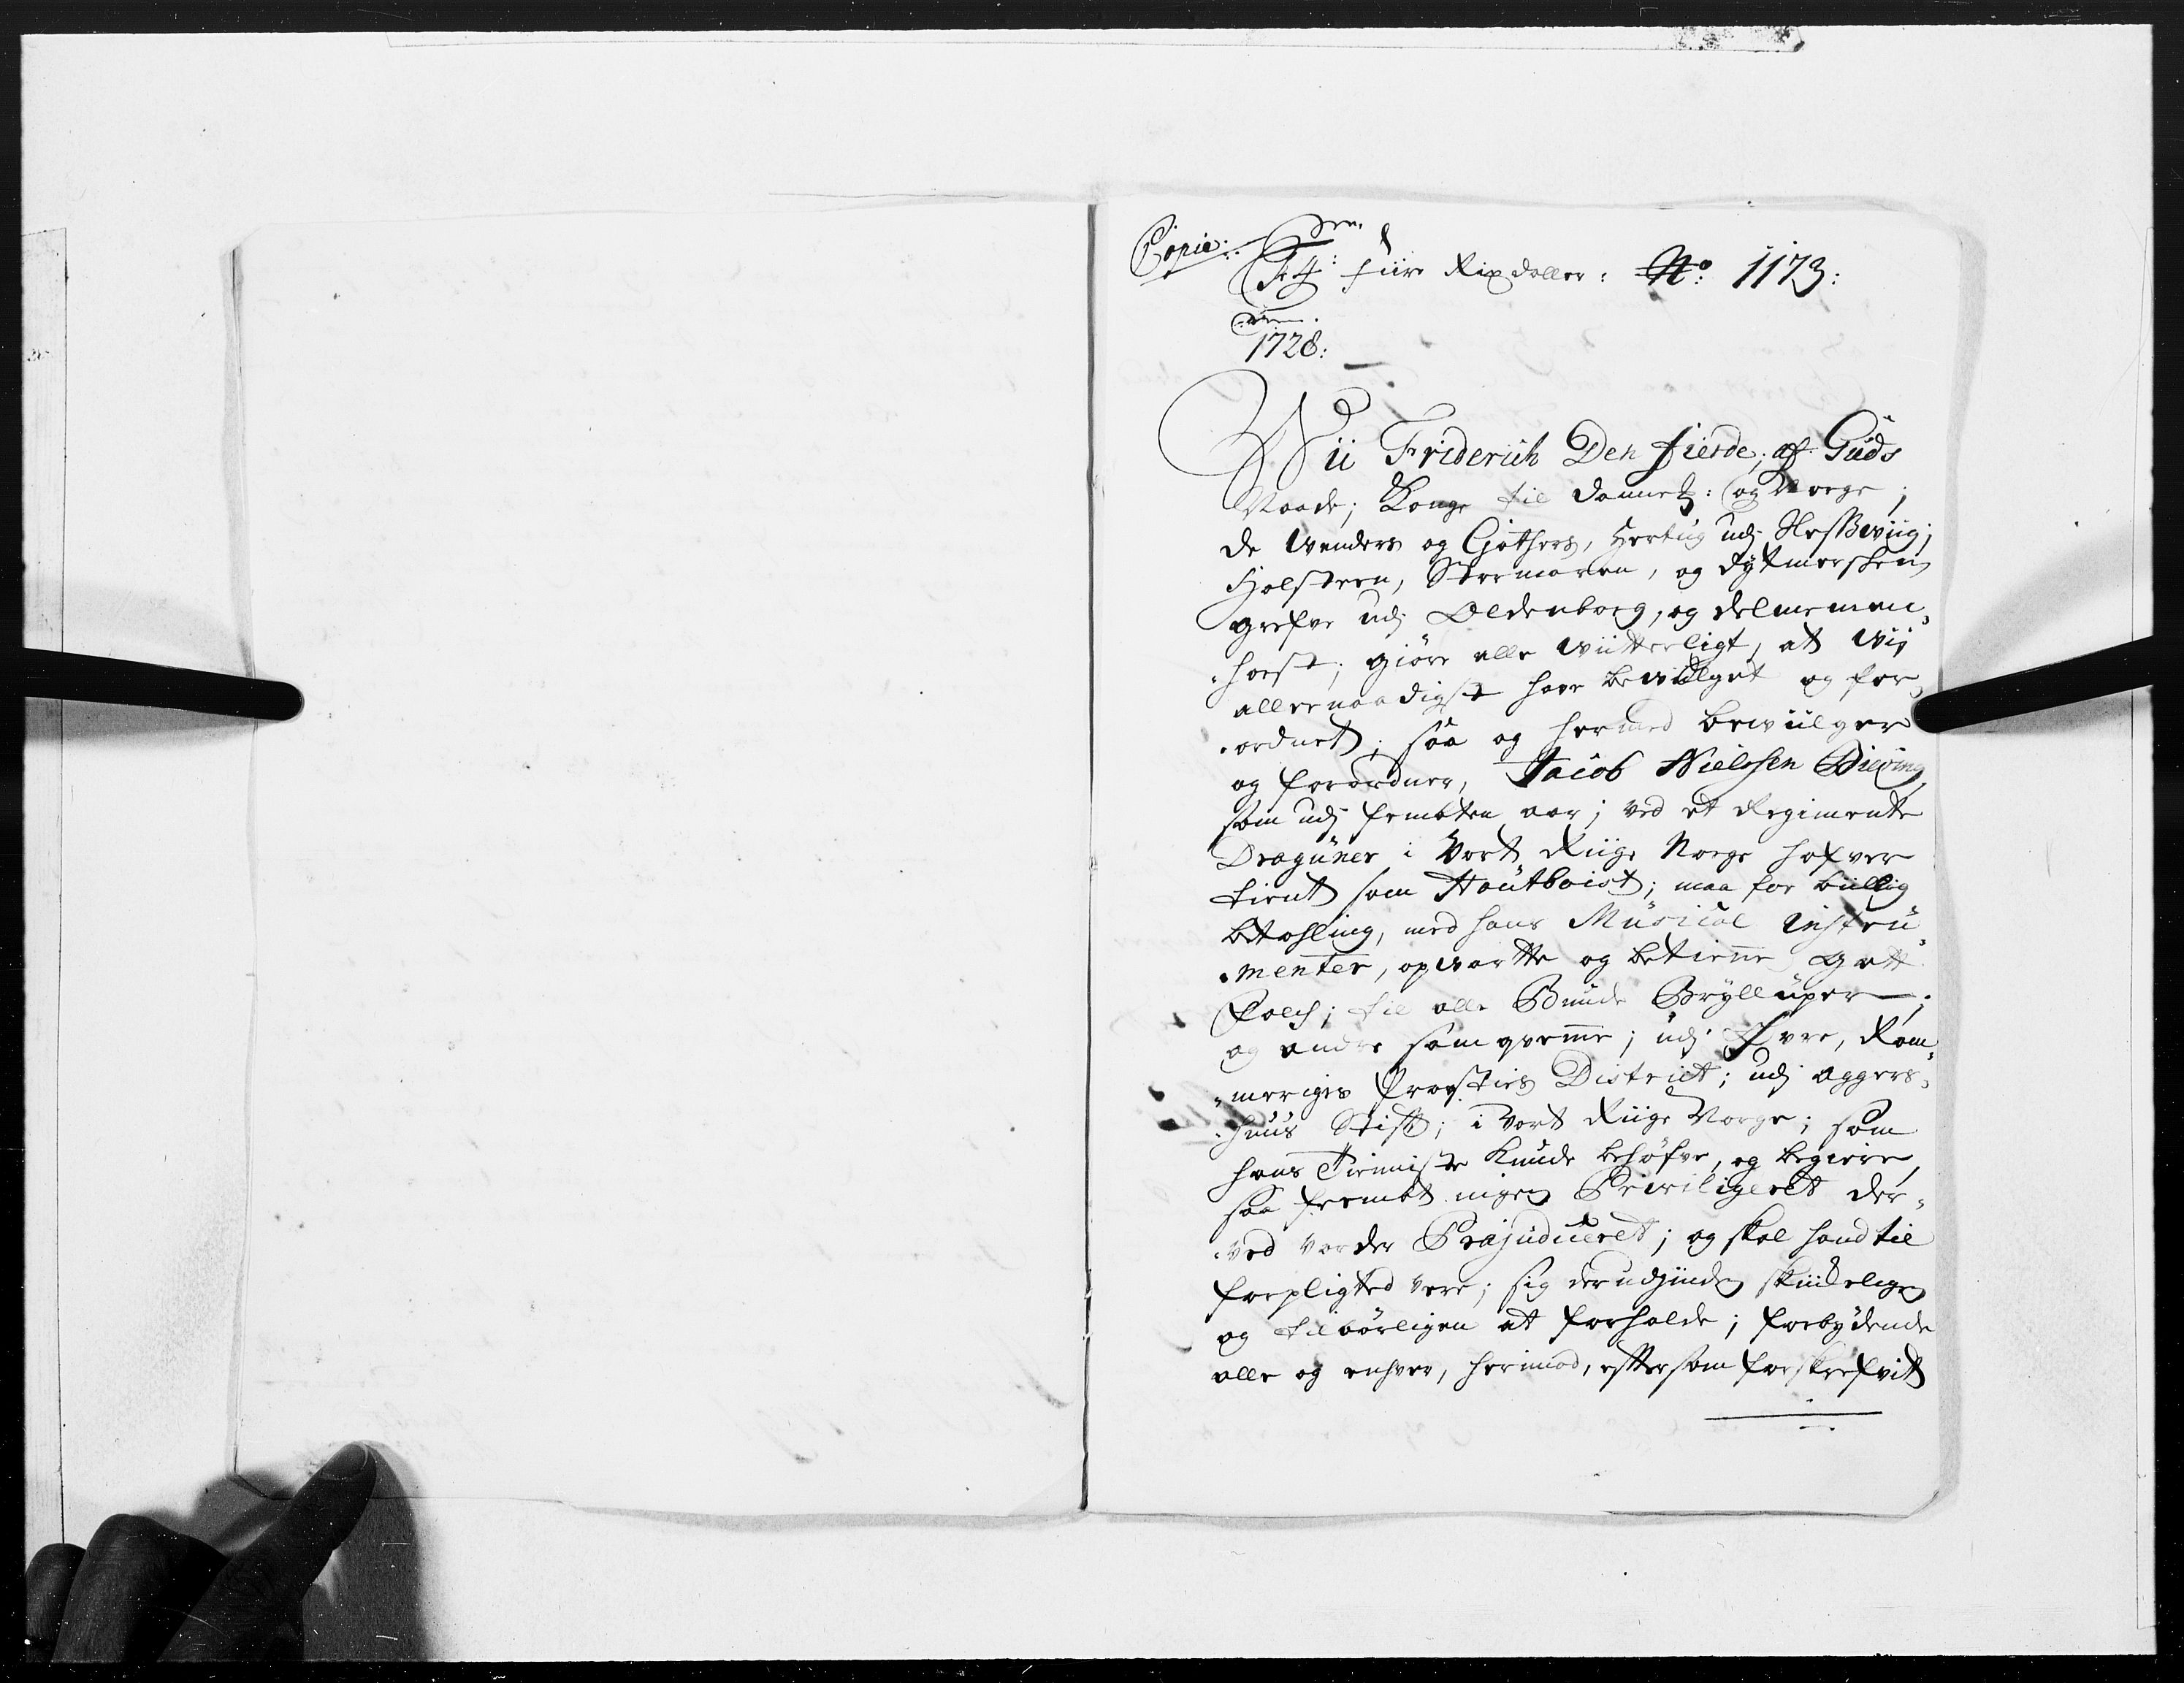 Copie:
F4: fiire Rixdaller: No: 1173:
1728:
Wii Friderich Den fierde; af Guds
Naade; Konge til Danmk: og Norge;
de Wenders og Gothers, Hertug udj Slesswiig;
Holsteen, Stormaren, og Dytmersken
grefve udj Oldenborg, og delmemen„
„horst; giöre alle Wiitterligt, at Wii
allernaadigst have bewilget og for„
„ordnet; saa og hermed bewiilger
og forordner, Jacob Nielssen
som udj fembten aar; ved et Regimente
Dragüner i Vort Riige Norge hafver
tient som Haütboist; maa for billig
betahling, med hans Müsical Instrü„
„menter, opwartte og betienne Gott
Folch; til alle Bunde Brylluper;
og andre samqvemme; udj Øvre, Rom„
„meriges Provsties District; udj Aggers„
„huus Stift; i Vort Riige Norge; som
hans Tienniste kunde behöfve, og begiere,
saa fremt ingen Priviligeret der„
„ved vorder Præjudiceret; og skal hand til
forpligted vere; sig derudjinden skickeligen
og tilbörligen at forholde; forbydende
alle og enhver, herimod, eftersom forskrefvit